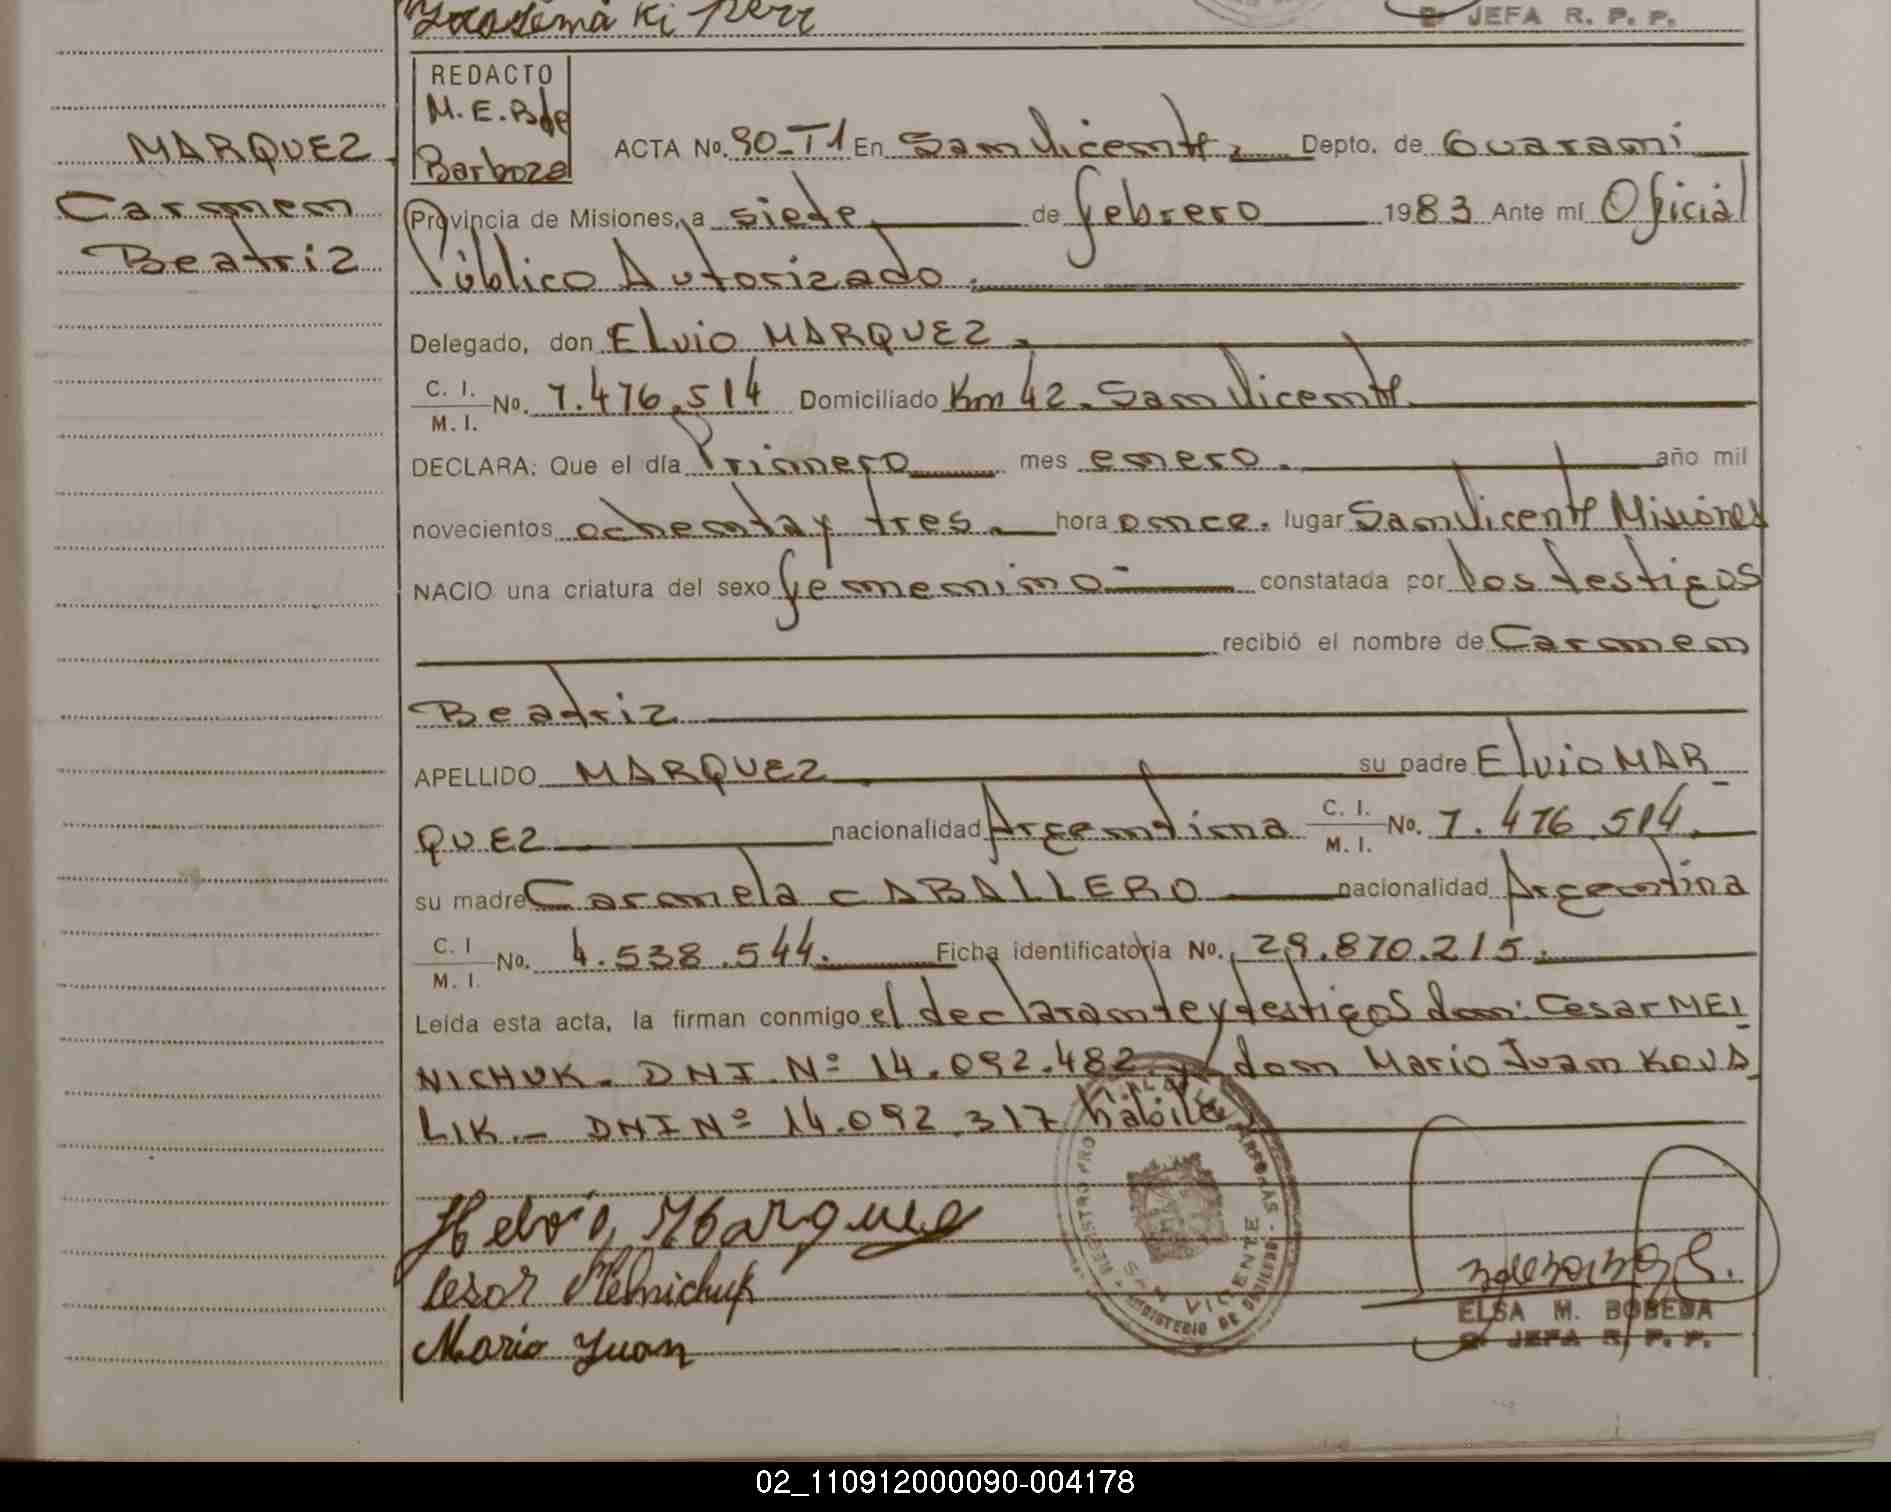 Ki
2 JEFA R. P. P.
MARQUEZ
Carmen
Beatriz
REDACTO
M. E. B de
Barboza
ACTA No. 90-T1 En San Vicente, Depto. de Guarani
Provincia de Misiones, a siete de febrero 1983 Ante mí Oficial
Público Autorizado.
Delegado, don ELvio MARQUEZ.
C. I.
M. I. No. 7.476.514 Domiciliado Km 42. San Vicente
DECLARA: Que el día Primero mes enero. año mil
novecientos ochenta y tres. hora once. lugar San Vicente Misiones
NACIO una criatura del sexo femenino- constatada por los testigos
recibió el nombre de Carmen
Beatriz
APELLIDO MARQUEZ su padre Elvio MAR
QUEZ nacionalidad Argentina C. I.
M. I. No. 7.476.514.
su madre Carmela CABALLERO nacionalidad Argentina
C. I
M. I. No. 4.538.544. Ficha identificatoria No. 29.870.215.
Leída esta acta, la firman conmigo el declarante y testigos don: Cesar MEL
NICHUK. DNI. Nº 14.092.482 y don Mario Juan KOVA
LIK.- DNI Nº 14.092.317 hábiles
Helvio Marquez
Cesar Melnichuk
Mario Juan
SAN VICENTE
ELSA M. BOBEDA
2 JEFA R. P. P.
02_110912000090-004178